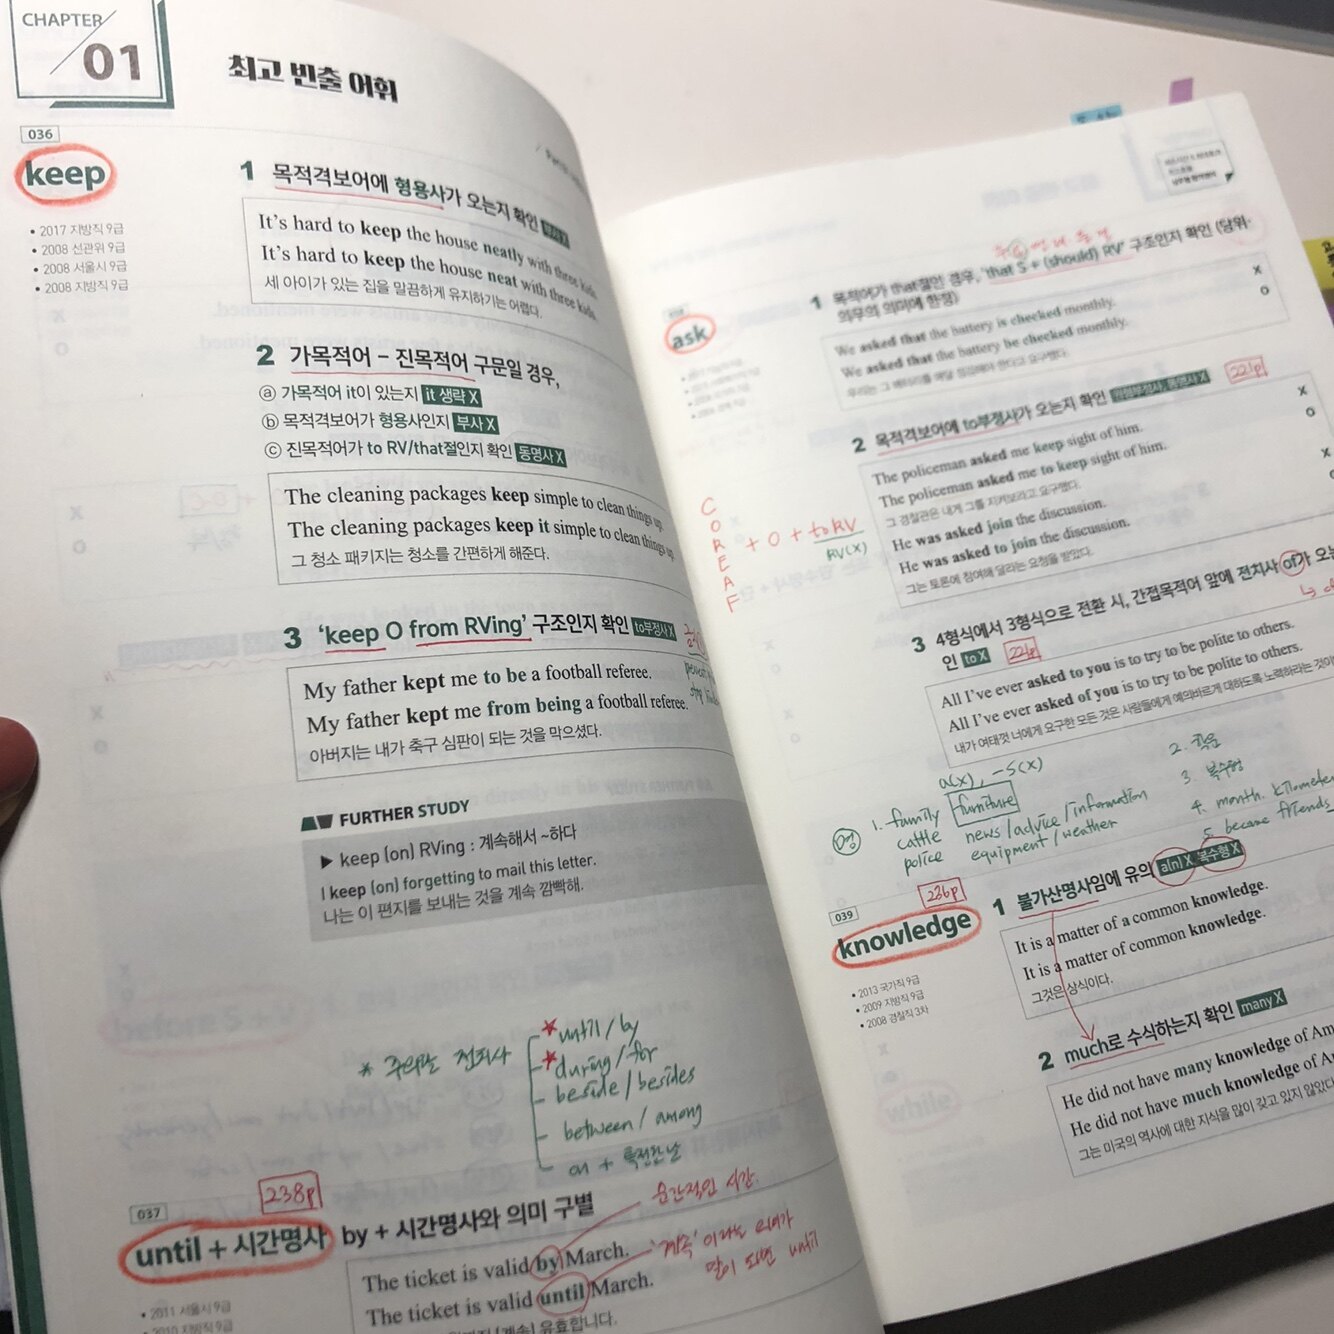 CHAPTER
01
최고 빈출 어휘
036
keep
• 2017 지방직 9급
• 2008 선관위 9급
• 2008 서울시 9급
• 2008 지방직 9급
1 목적격보어에 형용사가 오는지 확인 부사 X
It's hard to keep the house neatly with three kids.
It's hard to keep the house neat with three kids.
세 아이가 있는 집을 말끔하게 유지하기는 어렵다.
2 가목적어 – 진목적어 구문일 경우,
ⓐ 가목적어 it이 있는지 it 생략 X
ⓑ 목적격보어가 형용사인지 부사 X
ⓒ 진목적어가 to RV/that절인지 확인 동명사 X
The cleaning packages keep simple to clean things up.
The cleaning packages keep it simple to clean things up.
그 청소 패키지는 청소를 간편하게 해준다.
3 'keep O from RVing' 구조인지 확인 to부정사 X
My father kept me to be a football referee.
My father kept me from being a football referee.
아버지는 내가 축구 심판이 되는 것을 막으셨다.
FURTHER STUDY
▶ keep (on) RVing : 계속해서 ~하다
I keep (on) forgetting to mail this letter.
나는 이 편지를 보내는 것을 계속 깜빡해.
* 주의할 전치사
★ until / by
★ during / for
beside / besides
between / among
on + 특정한 날
238p
037
until + 시간명사
by + 시간명사와 의미 구별
순간적인 시간.
The ticket is valid by March.
The ticket is valid until March.
'계속'이라는 의미가
말이 되면 until
• 2011 서울시 9급
• 2010 지방직 9급
ask
1 목적어가 that절인 경우, 'that S + (should) RV' 구조인지 확인 (당위·
의무의 의미에 한정)
We asked that the battery is checked monthly. X
We asked that the battery be checked monthly. O
우리는 그 배터리를 매달 점검해야 한다고 요구했다.
221p
2 목적격보어에 to부정사가 오는지 확인 원형부정사, 동명사 X
The policeman asked me keep sight of him. X
The policeman asked me to keep sight of him. O
그 경찰관은 내게 그를 지켜보라고 요구했다.
He was asked join the discussion. X
He was asked to join the discussion.
그는 토론에 참여해 달라는 요청을 받았다.
COREAF + O + to RV
RV(X)
3 4형식에서 3형식으로 전환 시, 간접목적어 앞에 전치사 of가 오
인 to X 221p
All I've ever asked to you is to try to be polite to others.
All I've ever asked of you is to try to be polite to others.
내가 여태껏 너에게 요구한 모든 것은 사람들에게 예의바르게 대하도록 노력하라는 것이
a(x), -s(x)
1. family furniture
cattle news / advice / information
police equipment / weather
2. 학문
3. 복수형
4. month. kilometer
5. became friends
236p
039
knowledge
• 2013 국가직 9급
• 2009 지방직 9급
• 2008 경찰직 3차
1 불가산명사임에 유의 a(n) X 복수형 X
It is a matter of a common knowledge.
It is a matter of common knowledge.
그것은 상식이다.
2 much로 수식하는지 확인 many X
He did not have many knowledge of
He did not have much knowledge of
그는 미국의 역사에 대한 지식을 많이 갖고 있지 않았다